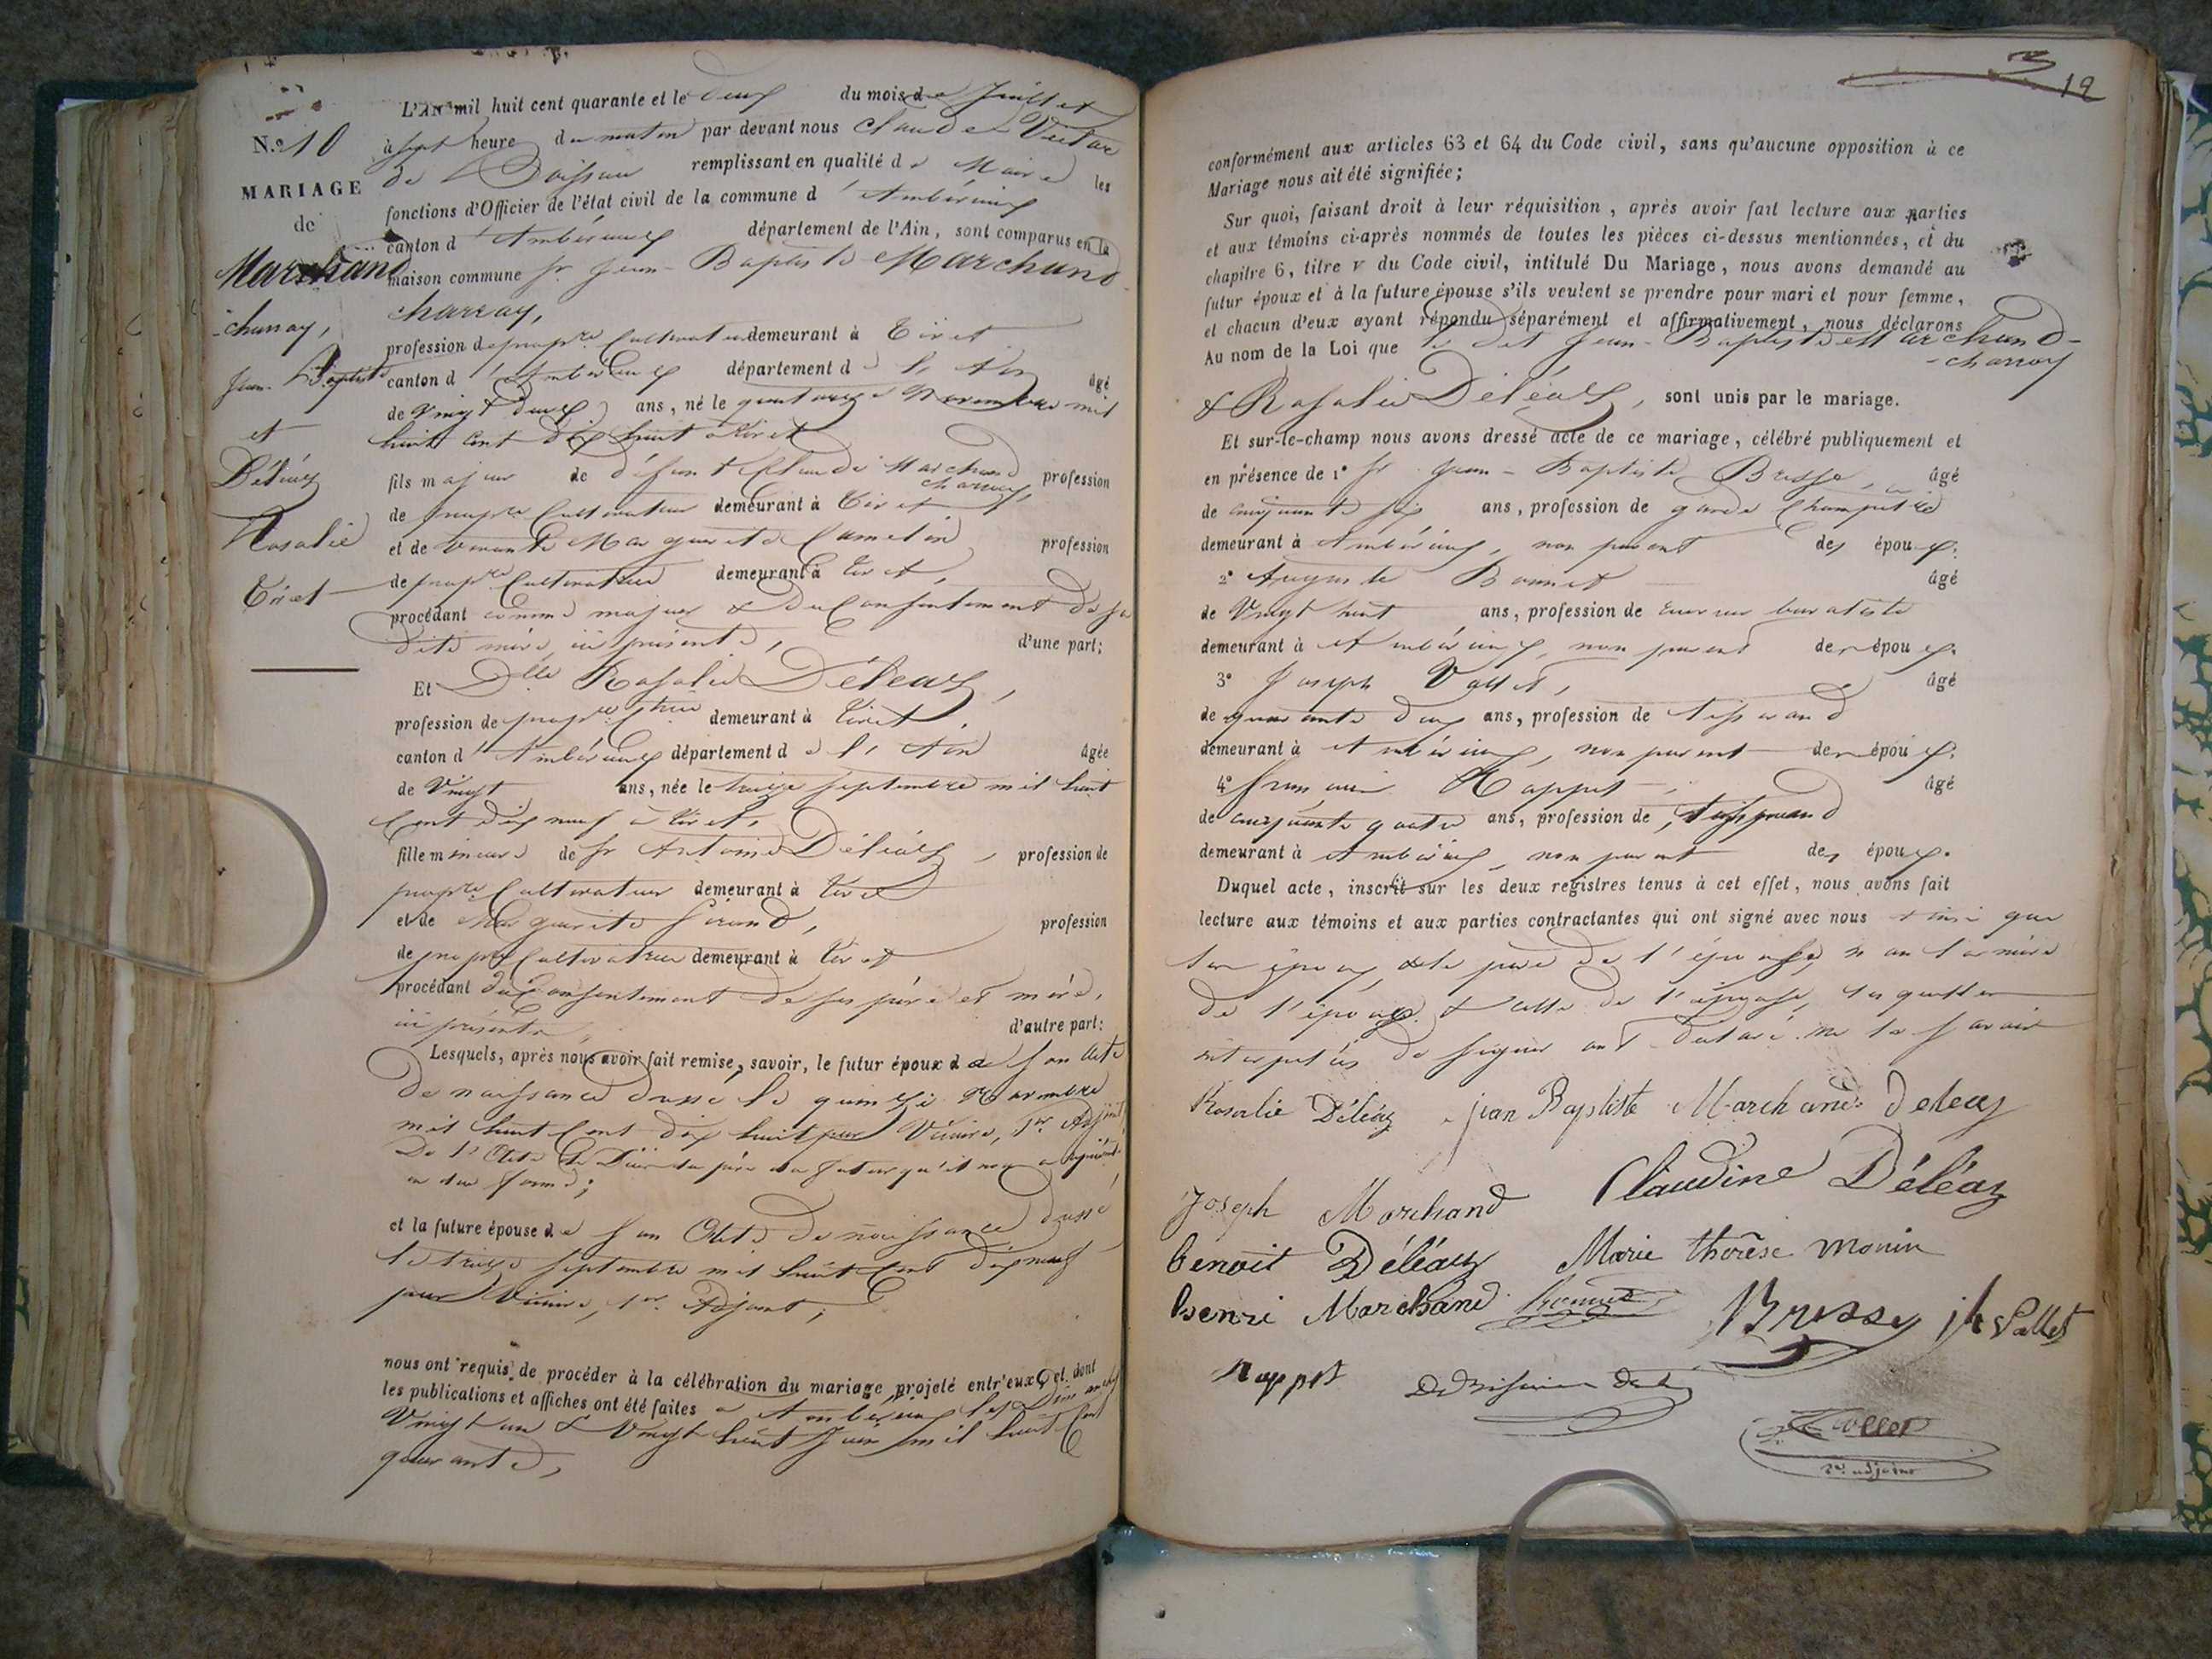 N.º 10
MARIAGE
de
Marchand
-charvay,
Jean-Baptiste
et
Déléaz
Rosalie
Tiret
L'AN mil huit cent quarante et le deux du mois de Juillet
à sept heure du matin par devant nous Claude Victor
de Boisson remplissant en qualité de Maire les
fonctions d'Officier de l'état civil de la commune d'Ambérieux
canton d'Ambérieux département de l'Ain, sont comparus en la
maison commune Sr Jean-Baptiste Marchand
charvay,
profession de propre Cultivateur demeurant à Tiret
canton d'Ambérieux département de l'Ain âgé
de Vingt deux ans, né le quatorze Novembre mil
huit Cent dix huit à Tiret
fils majeur de défunt Claude Marchand charvay, profession
de propre Cultivateur demeurant à Tiret,
et de vivante Marguerite Camelin profession
de propre Cultivatrice demeurant à Tiret,
procédant comme majeur & du Consentement de sa
dite mère, ici présente, d'une part;
Et Dlle Rosalie Déléaz,
profession de propre Ctrice demeurant à Tiret,
canton d'Ambérieux département de l'Ain âgée
de Vingt ans, née le treize septembre mil huit
Cent dix neuf à Tiret,
fille mineure de Sr Antoine Déléaz, profession de
propre Cultivateur demeurant à Tiret
et de Marguerite Girond, profession
de propre Cultivatrice demeurant à Tiret
procédant du Consentement de ses père et mère,
ici présents d'autre part:
Lesquels, après nous avoir fait remise, savoir, le futur époux de son Acte
de naissance dressé le quinze Novembre
mil huit Cent dix huit par 1er Adjoint,
De l'Acte de Décès du père du futur
en due forme;
et la future épouse de son Acte de naissance dressé
le treize septembre mil huit Cent dix neuf
par 1er Adjoint;
nous ont requis de procéder à la célébration du mariage projeté entr'eux, et dont
les publications et affiches ont été faites à Ambérieux les Dimanches
Vingt un & Vingt huit Juin mil huit Cent
quarante,
12
conformément aux articles 63 et 64 du Code civil, sans qu'aucune opposition à ce
Mariage nous ait été signifiée;
Sur quoi, faisant droit à leur réquisition, après avoir fait lecture aux parties
et aux témoins ci-après nommés de toutes les pièces ci-dessus mentionnées, et du
chapitre 6, titre v du Code civil, intitulé Du Mariage, nous avons demandé au
futur époux et à la future épouse s'ils veulent se prendre pour mari et pour femme,
et chacun d'eux ayant répondu séparément et affirmativement, nous déclarons
Au nom de la Loi que le dit Jean-Baptiste Marchand-
-charvoy
& Rosalie Déléaz, sont unis par le mariage.
Et sur-le-champ nous avons dressé acte de ce mariage, célébré publiquement et
en présence de 1º Sr Jean-Baptiste Brosse, âgé
de cinquante six ans, profession de garde Champêtre
demeurant à Ambérieux, non parent des époux.
2º Auguste Bonnet âgé
de Vingt huit ans, profession de
demeurant à Ambérieux, non parent des époux.
3º Joseph Vallet, âgé
de quarante deux ans, profession de tisserand
demeurant à Ambérieux, non parent des époux.
4º François Rappet, âgé
de cinquante quatre ans, profession de tisserand
demeurant à Ambérieux, non parent des époux.
Duquel acte, inscrit sur les deux registres tenus à cet effet, nous avons fait
lecture aux témoins et aux parties contractantes qui ont signé avec nous ainsi que
les époux, & le père de l'épouse, non la mère
de l'époux & celle de l'épouse, lesquelles
interpellées de signer ont déclaré ne le savoir
Rosalie Déléaz jean Baptiste Marchand deleaz
Joseph Marchand Claudine Déléaz
benoit Déléaz Marie thérèse monin
henri Marchand Bonnet Brosse jh Vallet
Rappet
2e adjoint